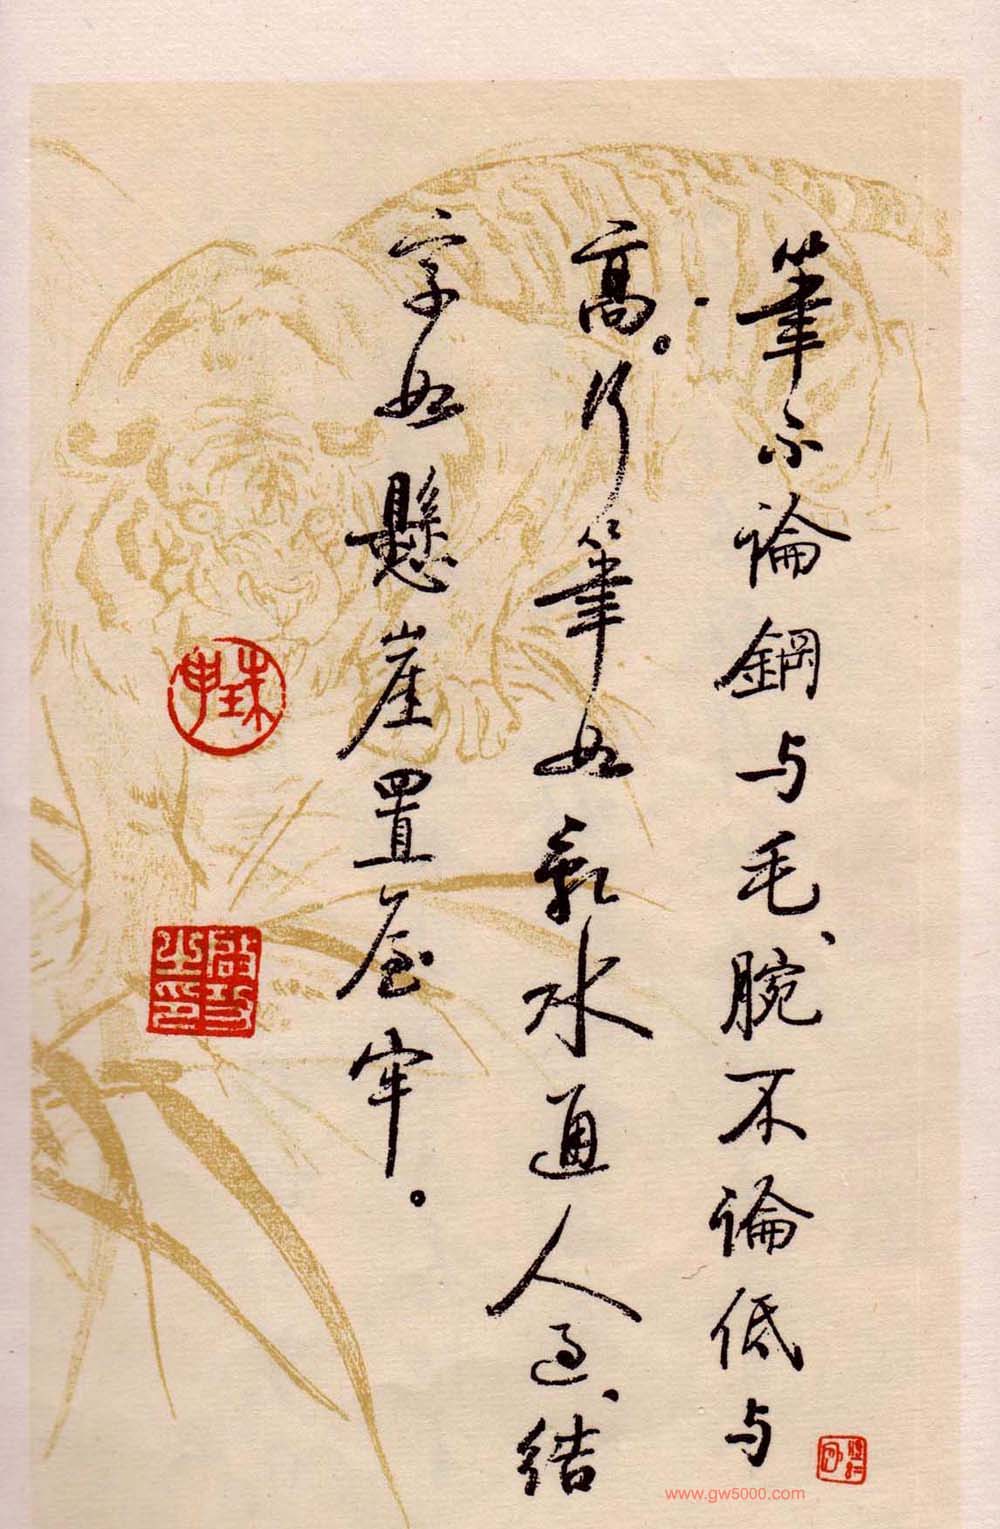 筆不論鋼与毛、腕不論低与
高。行筆如乳水通人過、結
字如懸崖置屋牢。
www.gw5000.com